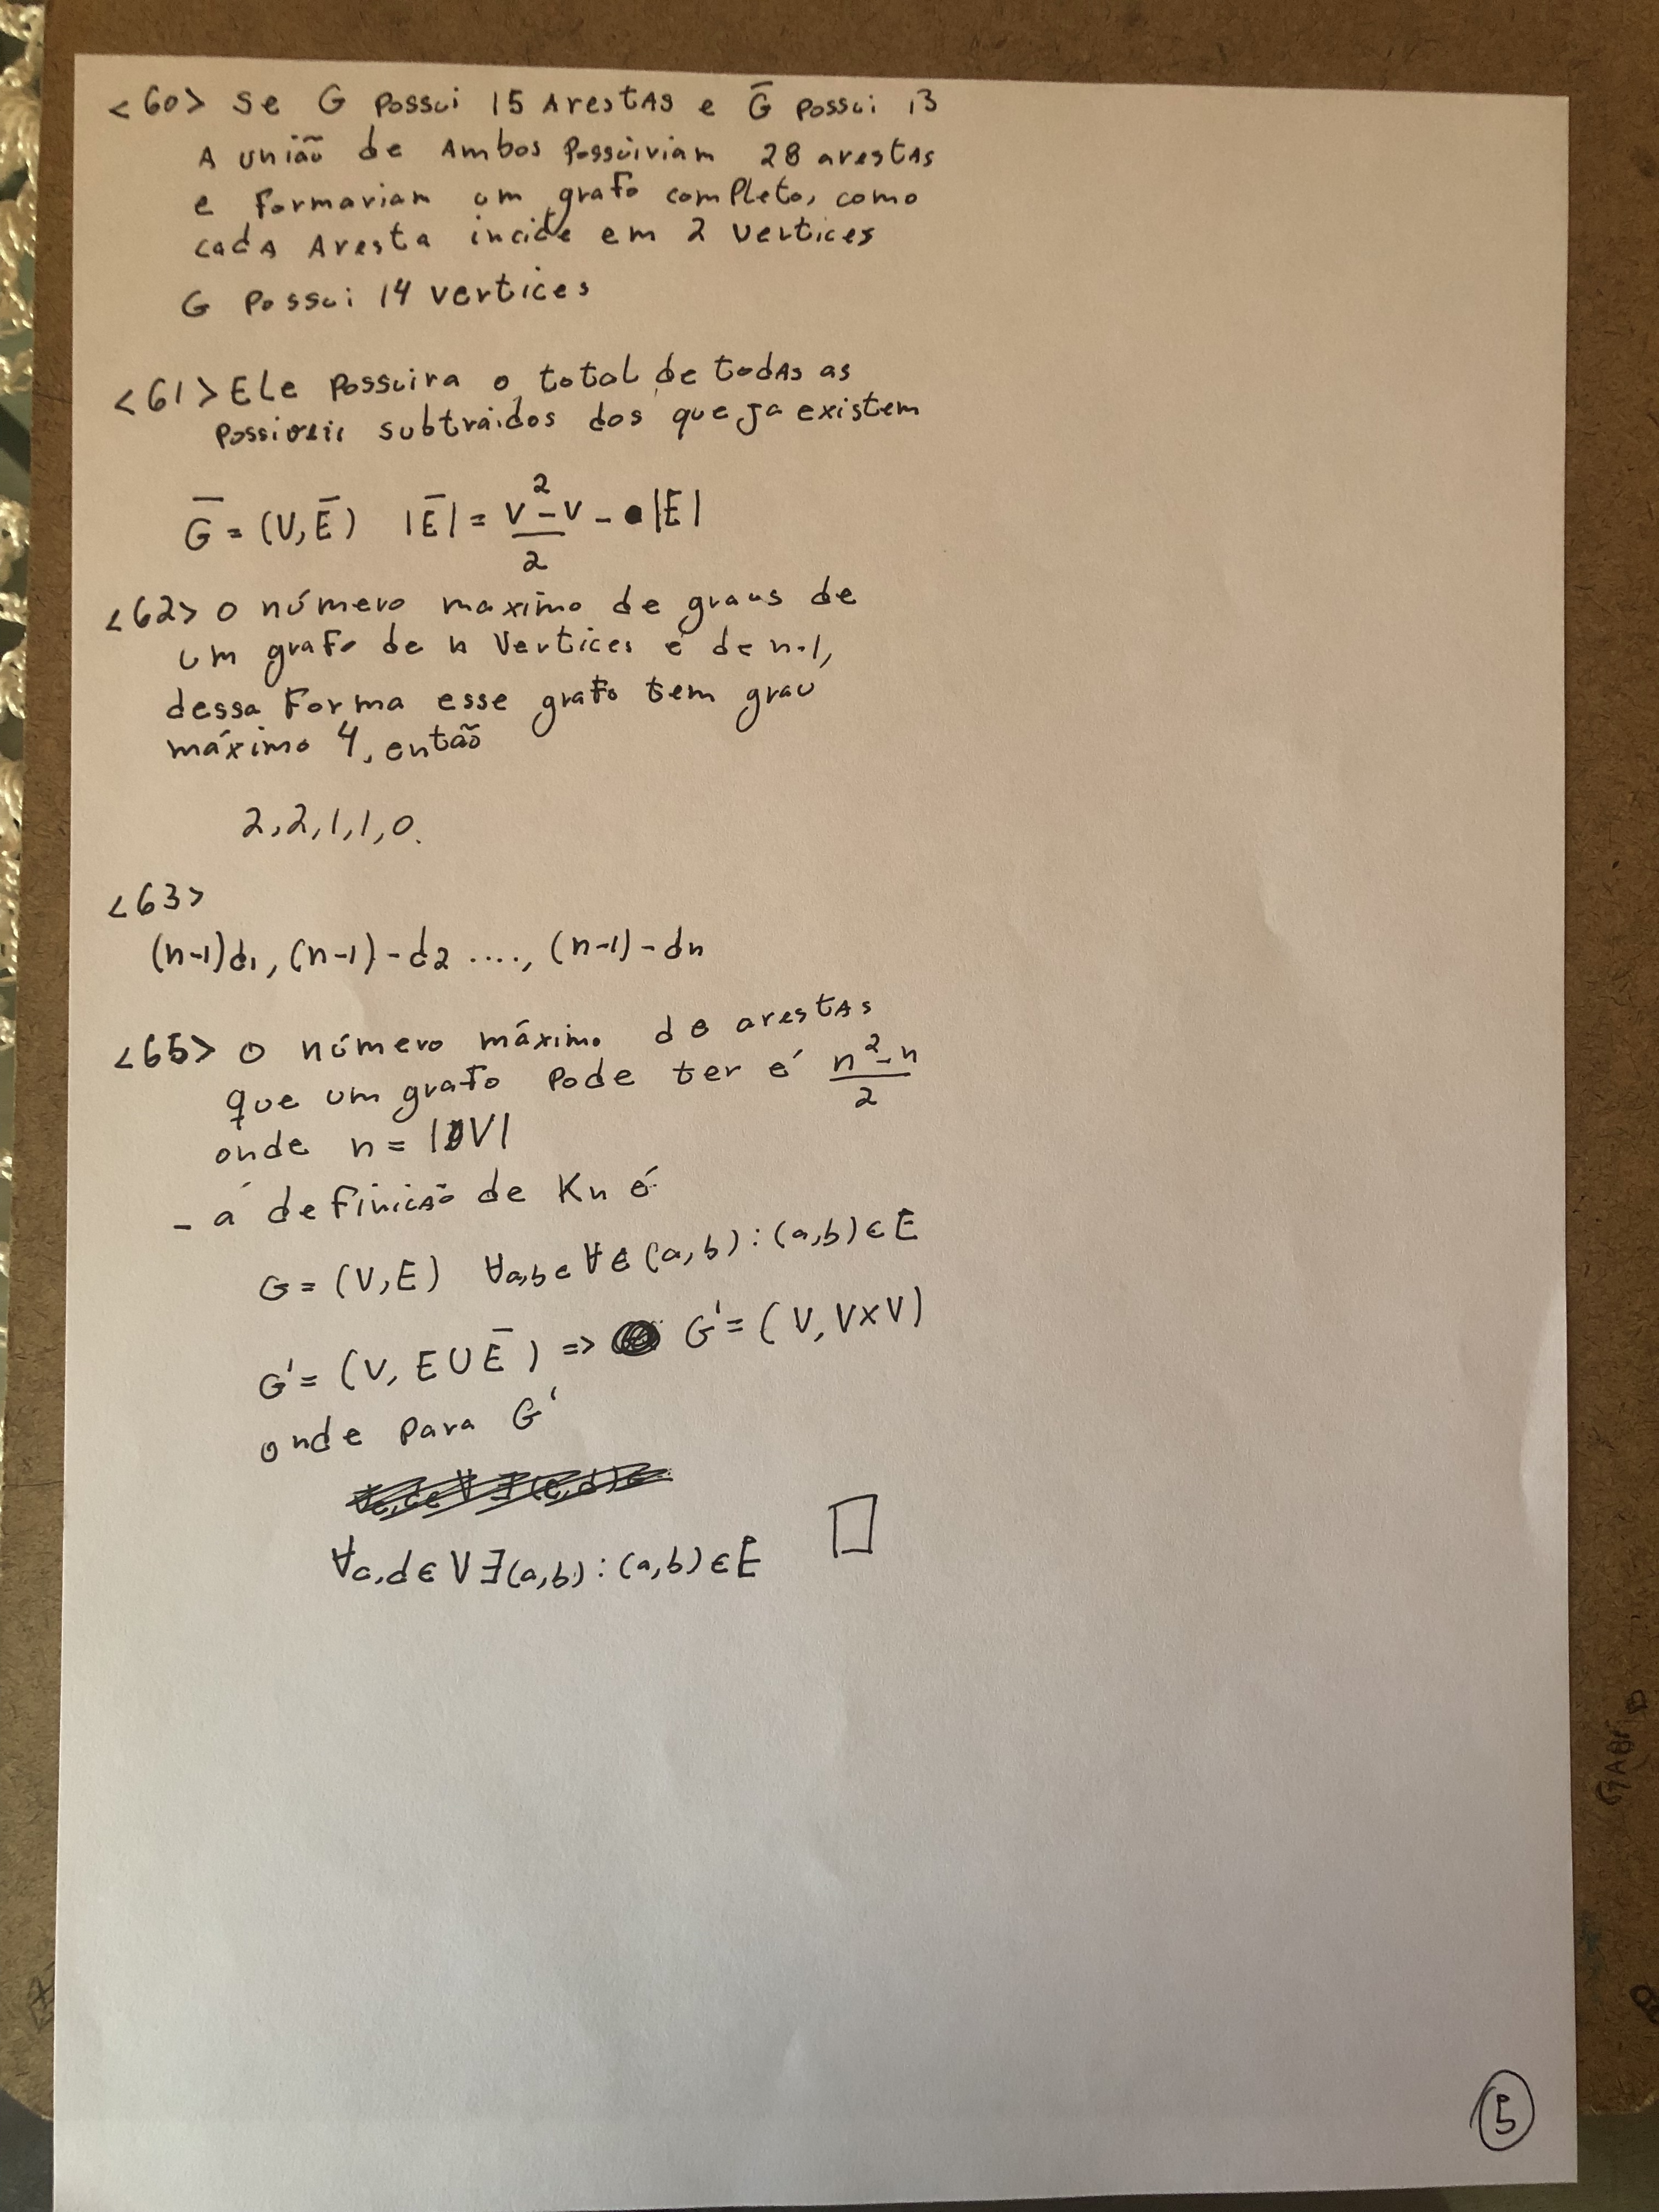 <60> Se G Possui 15 ArestAs e G̅ Possui 13
A união de Ambos Possuiriam 28 arestAs
e formariam um grafo completo, como
cadA Aresta incide em 2 vertices
G Possui 14 vertices
<61> Ele Possuira o total de todAs as
subtraidos dos que ja existem
G̅ = (V, E̅) |E̅| = (V² - V)/2 - |E|
<62> O número maximo de graus de
um grafo de n Vertices é de n-1,
dessa Forma esse grafo tem grau
máximo 4, então
2,2,1,1,0.
<63>
(n-1)d1, (n-1)-d2 ...., (n-1)-dn
<65> O número máximo de arestAs
que um grafo Pode ter é (n² - n)/2
onde n = |V|
- a definicão de Kn é
G = (V,E) ∀a,b∈∀∈(a,b):(a,b)∈E
G' = (V, E∪E̅) => G' = (V, V×V)
onde Para G'
∀c,d∈V∃(a,b):(a,b)∈E
5
GABi